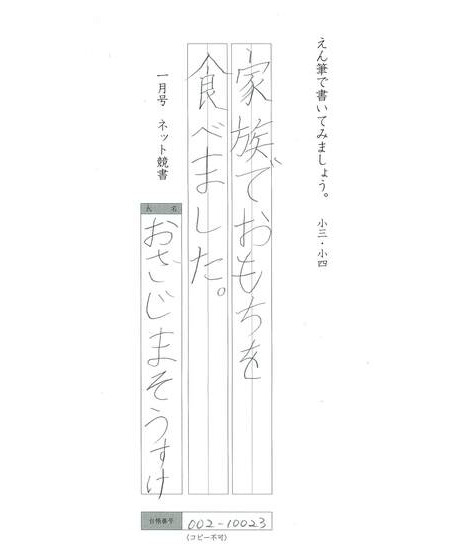 えん筆で書いてみましょう。 小三・小四
家族でおもちを
食べました。
一月号 ネット競書
氏名
おざじまそうすけ
台帳番号 002-10023
(コピー不可)